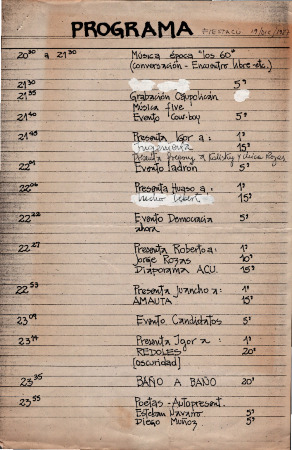 PROGRAMA FIESTACU 19/DIC/1987
20³⁰ a 21³⁰ Música época "los 60"
(conversación - Encuentro libre - etc.)
21³⁰ 5'
21³⁵ Grabación Caupolicán
Música five
21⁴⁰ Evento Cow-boy 5'
21⁴⁵ Presenta Igor a: 1'
15'
Evento Ladron 5'
Presenta Huaso a: 1'
15'
22²² Evento Democracia 5'
ahora
22²⁷ Presenta Roberto a: 1'
Jorge Rozas 10'
Diaporama A.C.U. 15'
22⁵³ Presenta Juancho a: 1'
AMAUTA 15'
23⁰⁹ Evento Candidatos 5'
23¹⁴ Presenta Igor a: 1'
REDOLES 20'
(oscuridad)
23³⁵ BAÑO A BAÑO 20'
23⁵⁵ Poetas - Autopresent.
Esteban Navarro 5'
Diego Muñoz 5'